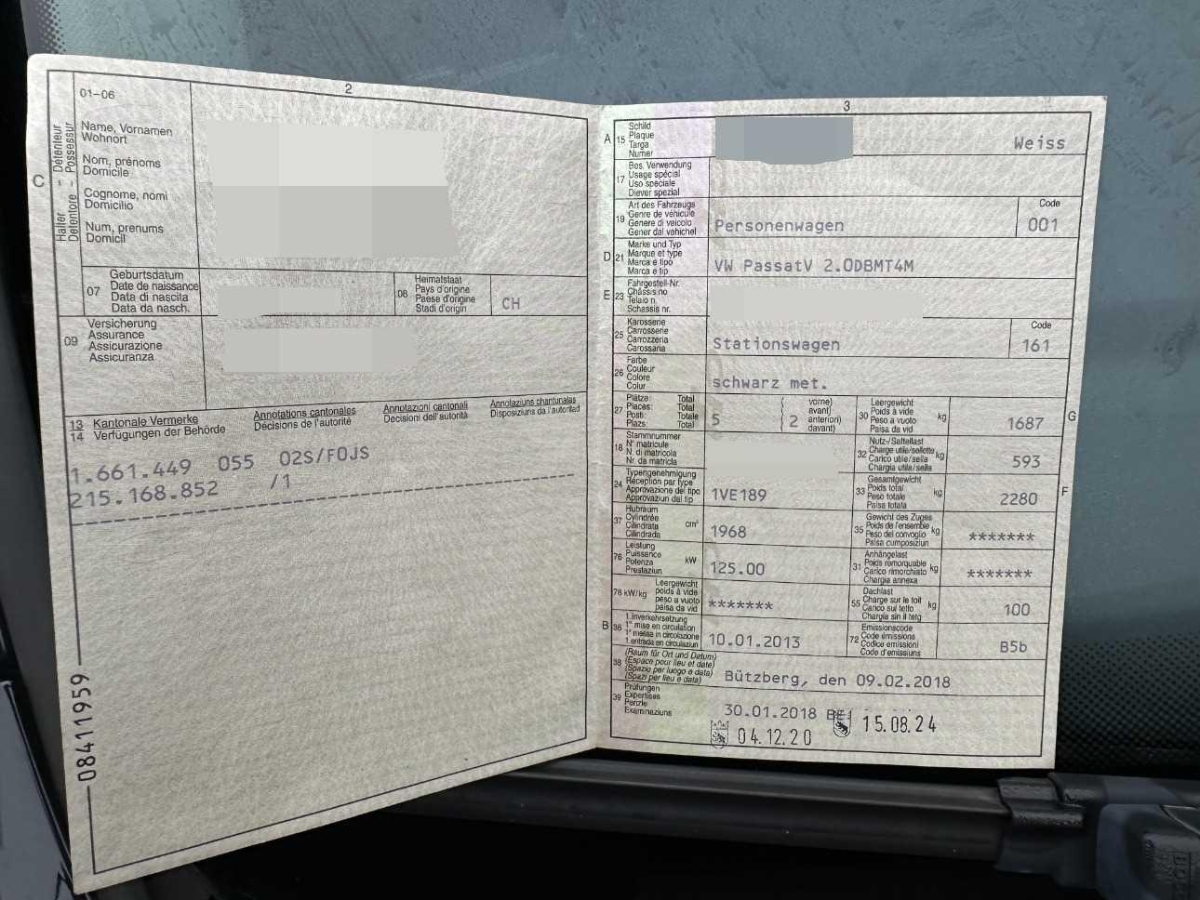 2
01-06
C
Halter - Détenteur
Detentore - Possessur
Name, Vornamen
Wohnort
Nom, prénoms
Domicile
Cognome, nomi
Domicilio
Num, prenums
Domicil
07
Geburtsdatum
Date de naissance
Data di nascita
Data da nasch.
08
Heimatstaat
Pays d'origine
Paese d'origine
Stadi d'origin
CH
09
Versicherung
Assurance
Assicurazione
Assicuranza
13 Kantonale Vermerke
14 Verfügungen der Behörde
Annotations cantonales
Décisions de l'autorité
Annotazioni cantonali
Decisioni dell'autorità
Annotaziuns chantunales
Disposiziuns da l'autoritad
1.661.449 055 02S/FOJS
215.168.852 /1
08411959
3
A 15
Schild
Plaque
Targa
Numer
Weiss
17
Bes. Verwendung
Usage spécial
Uso speciale
Diever spezial
19
Art des Fahrzeugs
Genre de véhicule
Genere di veicolo
Gener dal vehichel
Personenwagen
Code
001
D 21
Marke und Typ
Marque et type
Marca e tipo
Marca e tip
VW PassatV 2.0DBMT4M
E 23
Fahrgestell-Nr.
Châssis no
Telaio n.
Schassis nr.
25
Karosserie
Carrosserie
Carrozzeria
Carossaria
Stationswagen
Code
161
26
Farbe
Couleur
Colore
Colur
schwarz met.
27
Plätze: Total
Places: Total
Posti: Totale
Plazs: Total
5
2
vorne)
avant)
anteriori)
davant)
30
Leergewicht
Poids à vide
Peso a vuoto
Paisa da vid
kg
1687
G
18
Stammnummer
N° matricule
N. di matricola
Nr. da matricla
32
Nutz-/Sattellast
Charge utile/sellette
Carico utile/sella
Chargia utila/sella
kg
593
24
Typengenehmigung
Réception par type
Approvazione del tipo
Approvaziun dal tip
1VE189
33
Gesamtgewicht
Poids total
Peso totale
Paisa totala
kg
2280
F
37
Hubraum
Cylindrée
Cilindrata
Cilindrada
cm³
1968
35
Gewicht des Zuges
Poids de l'ensemble
Peso del convoglio
Paisa cumposiziun
kg
*******
76
Leistung
Puissance
Potenza
Prestaziun
kW
125.00
31
Anhängelast
Poids remorquable
Carico rimorchiato
Chargia annexa
kg
*******
78 kW/kg
Leergewicht
poids à vide
peso a vuoto
paisa da vid
*******
55
Dachlast
Charge sur le toit
Carico sul tetto
Chargia sin il tetg
kg
100
B 36
1. Inverkehrsetzung
1re mise en circulation
1a messa in circolazione
1. entrada en circulaziun
10.01.2013
72
Emissionscode
Code émissions
Codice emissioni
Code d'emissiuns
B5b
38
(Raum für Ort und Datum)
(Espace pour lieu et date)
(Spazio per luogo e data)
(Spazi per lieu e data)
Bützberg, den 09.02.2018
39
Prüfungen
Expertises
Perizie
Examinaziuns
30.01.2018 BE
04.12.20
15.08.24